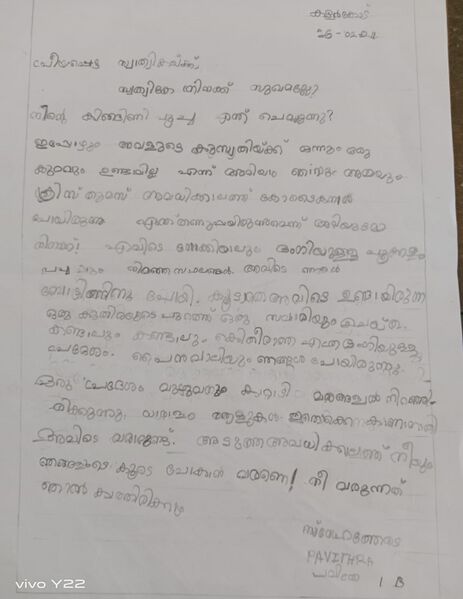 കളർകോട്
26-02-24
പ്രിയപ്പെട്ട സ്വാതികയ്ക്ക്,
നിനക്ക് സുഖമല്ലേ?
നിന്റെ കിങ്ങിണി പൂച്ച എന്ത് ചെയ്യുന്നു?
ഇപ്പോഴും അവളുടെ കുസൃതിയ്ക്ക് ഒന്നും ഒരു
കുറവും ഉണ്ടാവില്ല എന്ന് അറിയാം ഞാനും അമ്മയും
ക്രിസ്തുമസ് അവധിക്കാലത്ത് കോടൈകനാൽ
പോയിരുന്നു എന്ത് തണുപ്പായിരുന്നുവെന്ന് അറിയുമോ
നിനക്ക്! എവിടെ നോക്കിയാലും ഭംഗിയുള്ള പൂക്കളും
നിറഞ്ഞ സ്ഥലങ്ങൾ അവിടെ ഞങ്ങൾ
ബോട്ടിങ്ങിനു പോയി. കൂടാതെ അവിടെ ഉണ്ടായിരുന്ന
ഒരു കുതിരയുടെ പുറത്ത് ഒരു സവാരിയും ചെയ്തു.
കണ്ടാലും കണ്ടാലും കൊതിതീരാത്ത ഭംഗിയുള്ള
പ്രദേശം. പൈൻ വാലിയും ഞങ്ങൾ പോയിരുന്നു.
ഒരു പ്രദേശം മുഴുവനും കാറ്റാടി മരങ്ങൾ നിറഞ്ഞു
നിൽക്കുന്നു. ധാരാളം ആളുകൾ ഇതൊക്കെ കാണാനായി
അവിടെ വരാറുണ്ട്. അടുത്ത അവധിക്കാലത്ത് നീയും
ഞങ്ങളുടെ കൂടെ പോകാൻ വരണേ! നീ വരുന്നത്
ഞാൻ കാത്തിരിക്കും
സ്നേഹത്തോടെ
PAVITHRA
പവിത്ര 1 B
vivo Y22